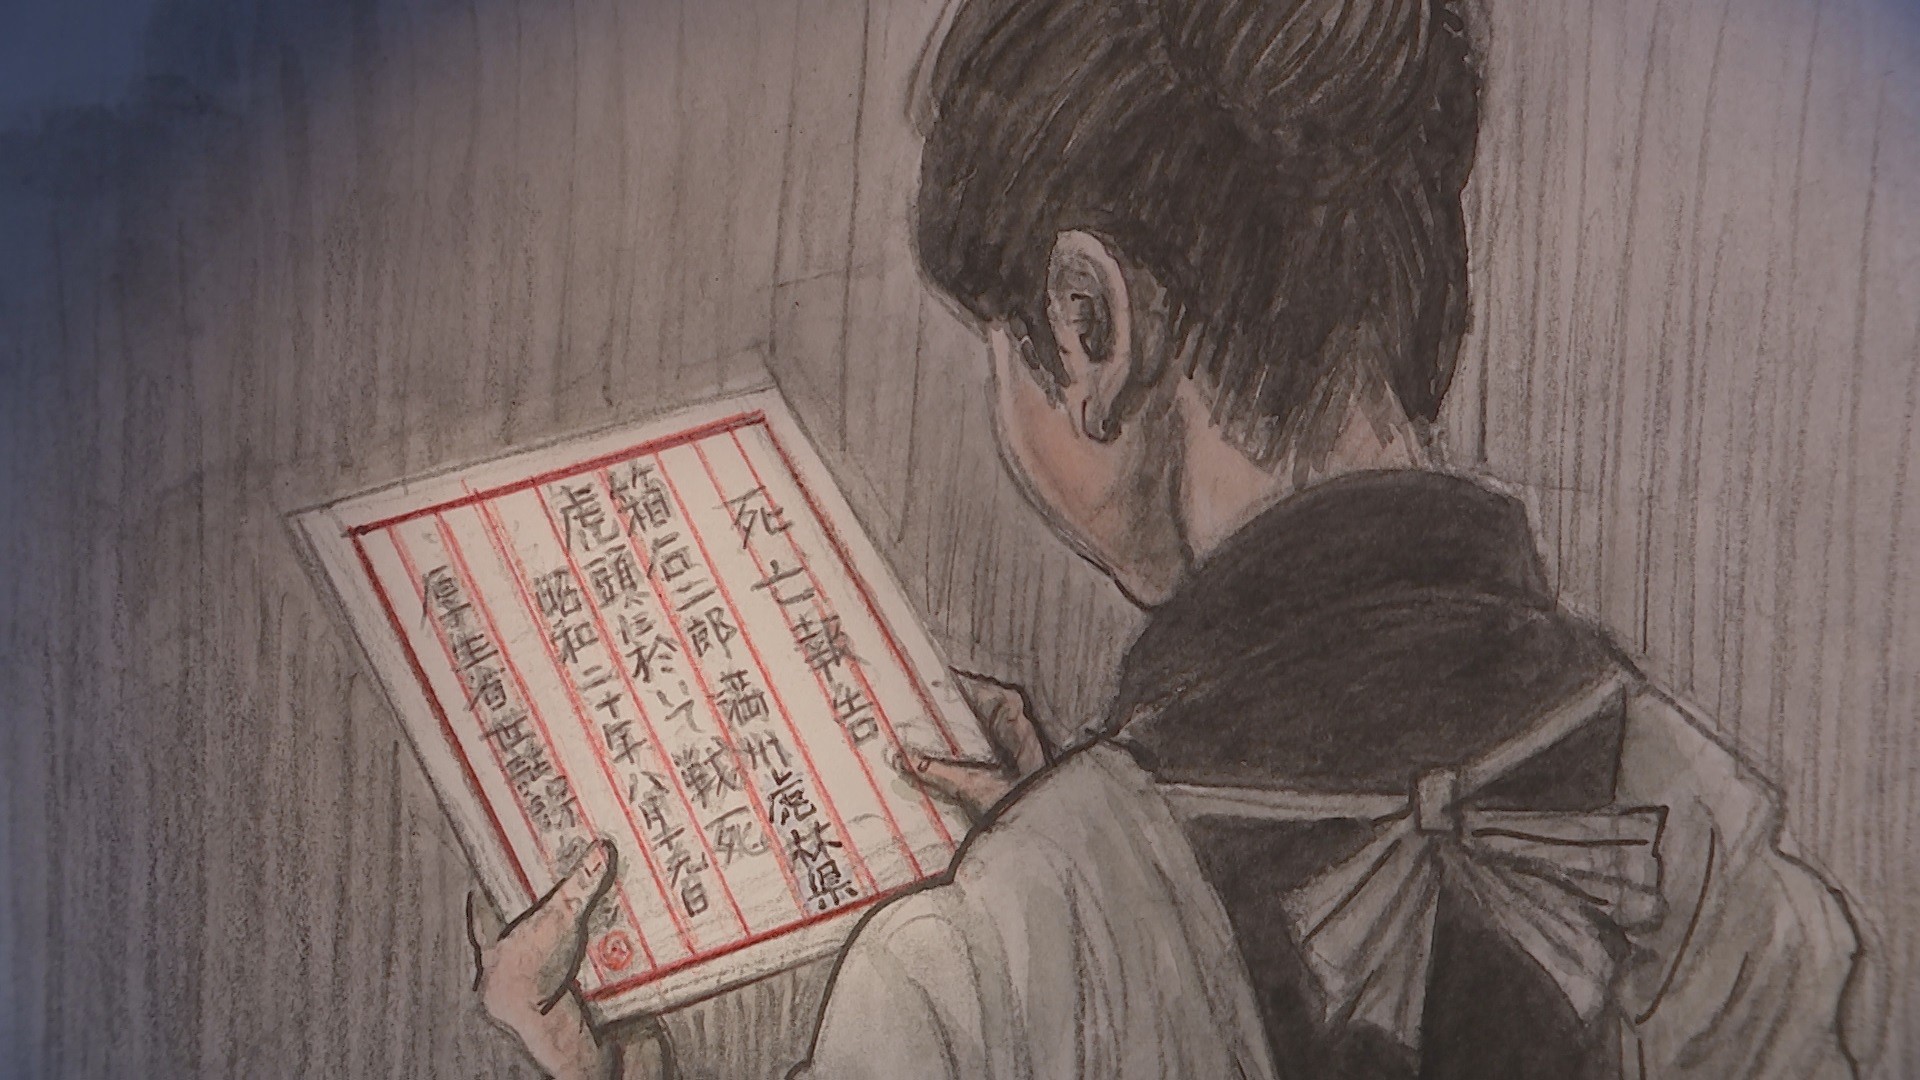 死亡報告
箱石二郎 満州虎林県
虎頭に於いて戦死
昭和二十年八月十九日
厚生省